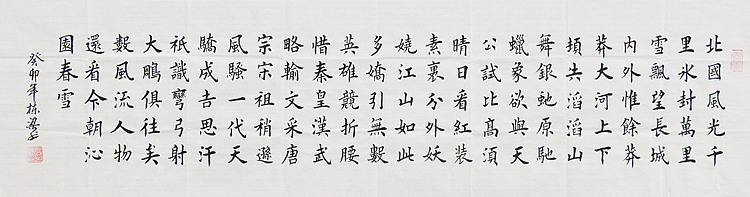 北國風光千
里氷封萬里
雪飄望長城
內外惟餘莽
莽大河上下
頓失滔滔山
舞銀虵原馳
蠟象欲與天
公試比髙須
晴日看紅裝
素裹分外妖
嬈江山如此
多嬌引無數
英雄競折腰
惜秦皇漢武
略輸文采唐
宗宋祖稍遜
風騷一代天
驕成吉思汗
祇識彎弓射
大鵰俱往矣
數風流人物
還看今朝沁
園春雪
癸卯年